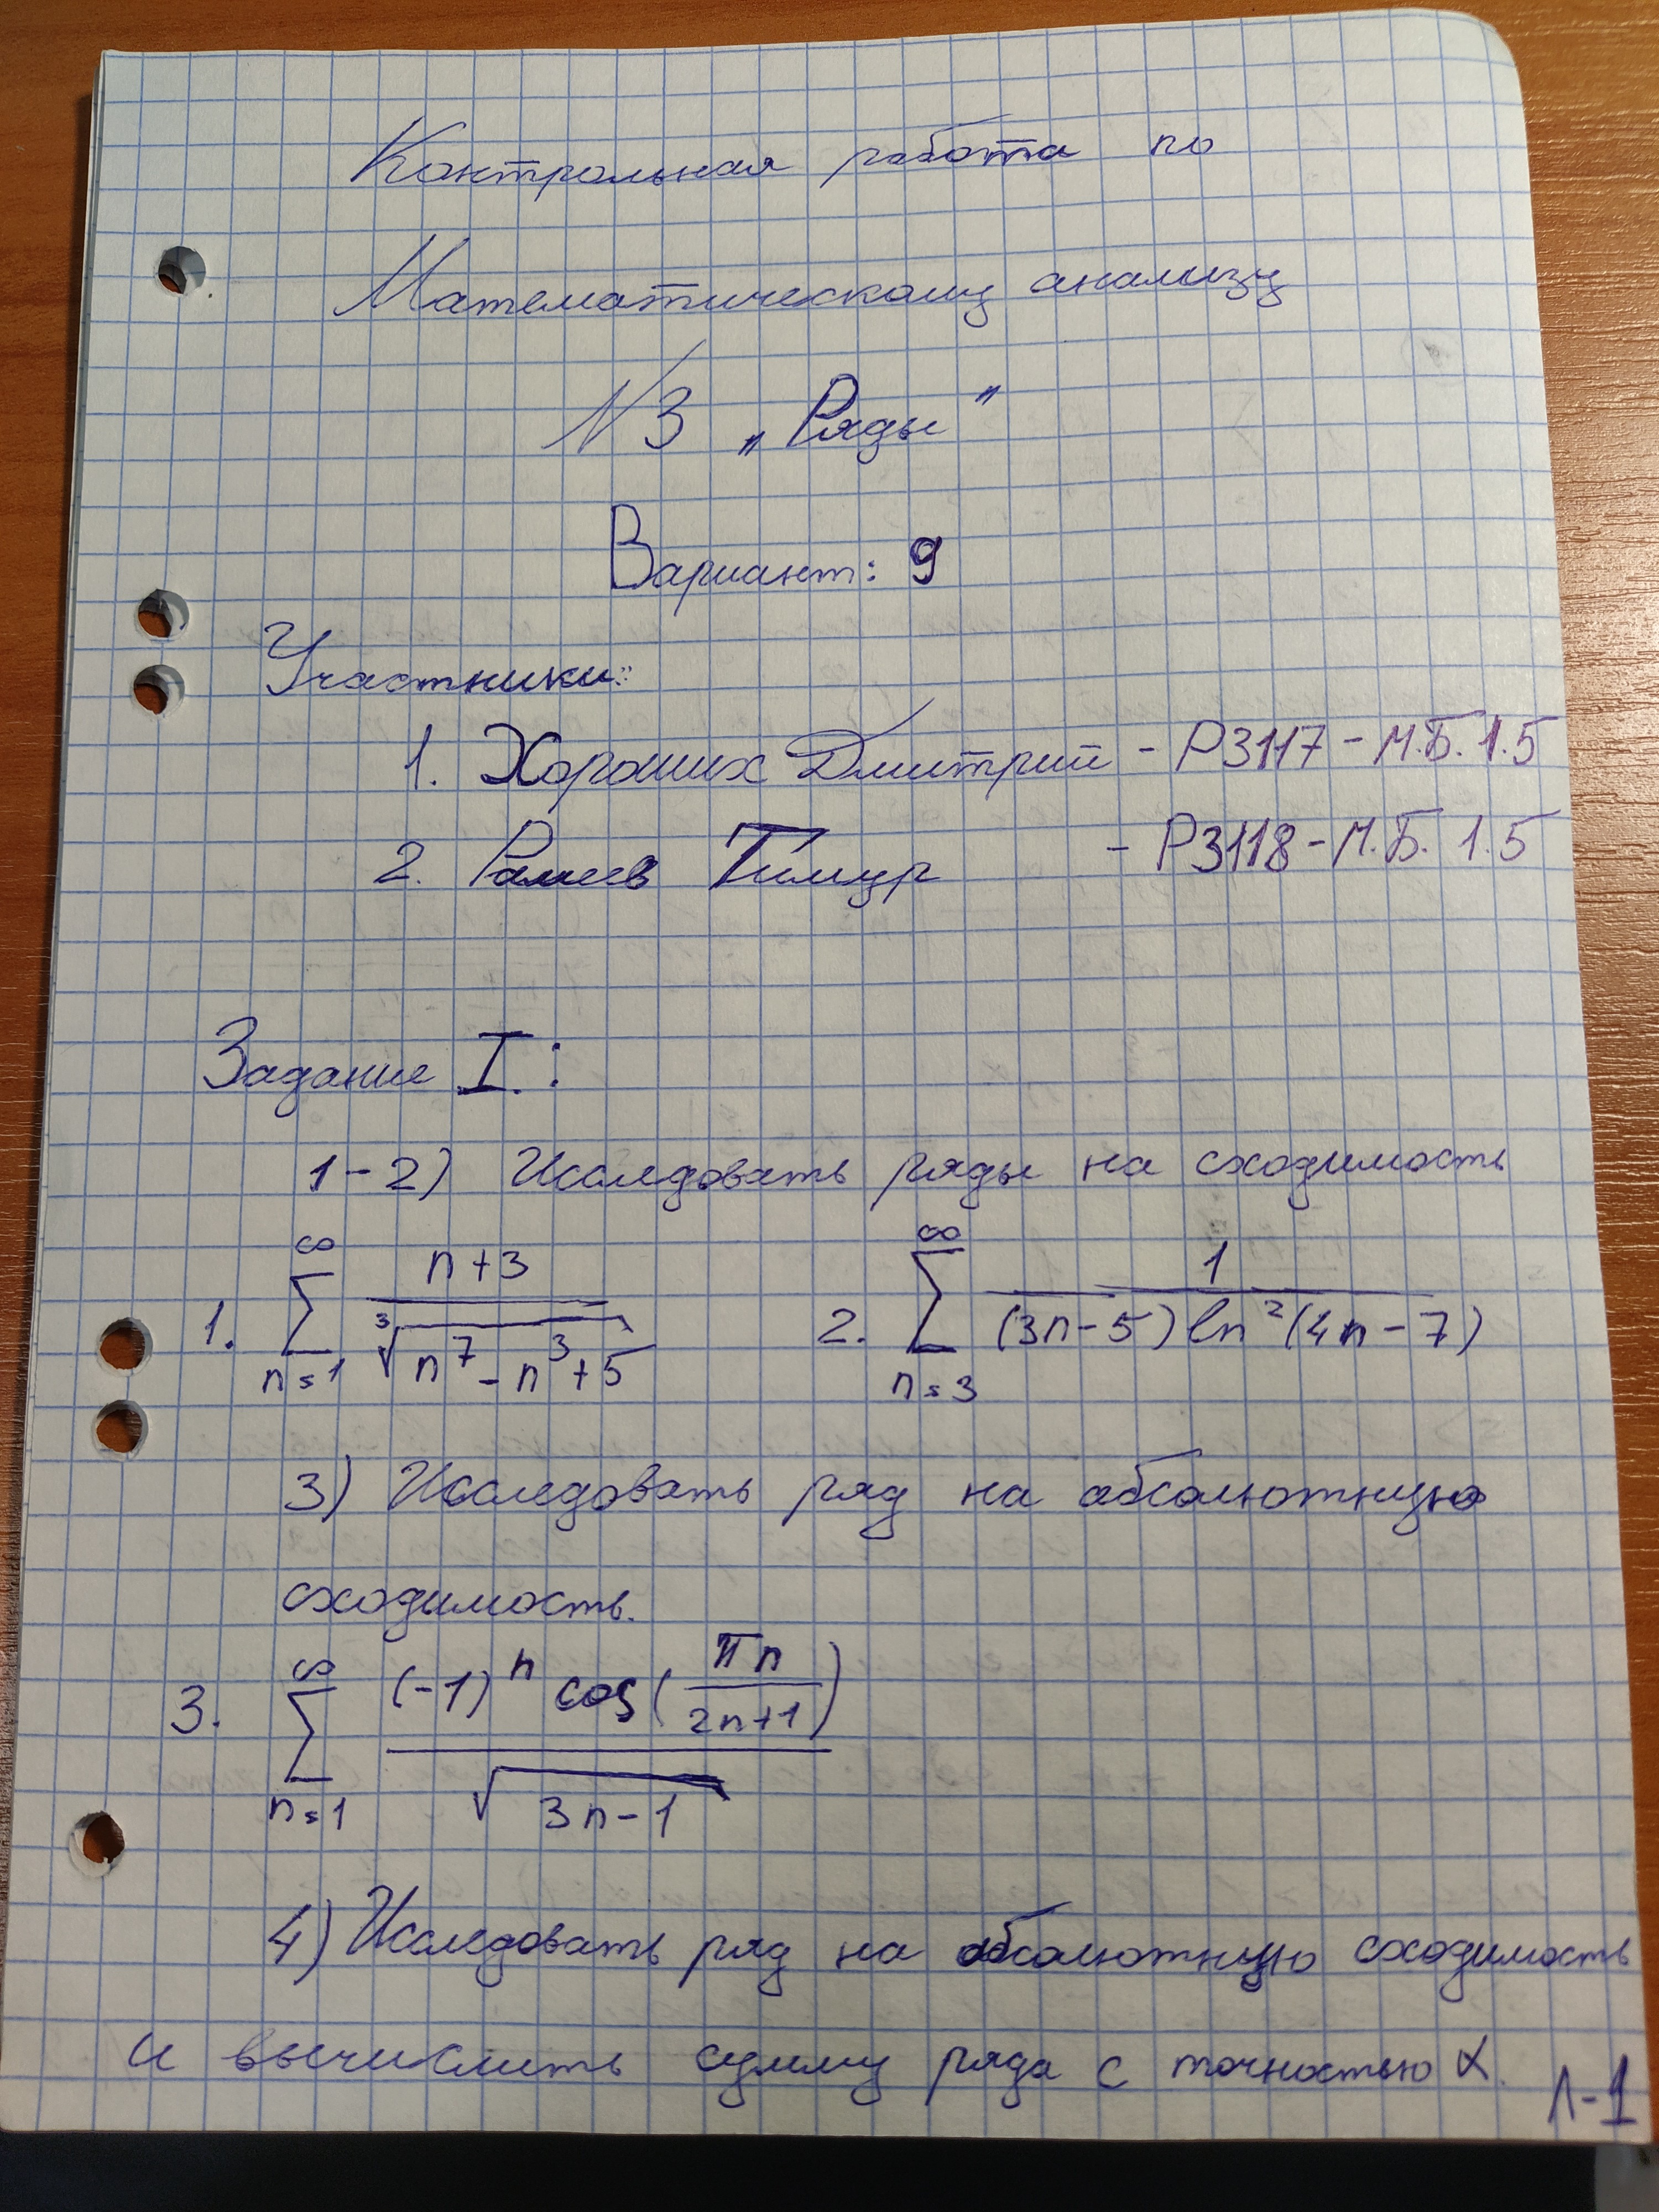 Контрольная работа по
Математическому анализу
N3 „Ряды"
Вариант: 9
Участники:
1. Хороших Дмитрий - P3117 - М.Б. 1.5
2. Тимур - P3118 - М.Б. 1.5
Задание I.:
1-2) Исследовать ряды на сходимость
1. ∑_{n=1}^{∞} (n+3)/∛(n^7-n^3+5) 2. ∑_{n=3}^{∞} 1/((3n-5)ln²(4n-7))
3) Исследовать ряд на абсолютную
сходимость.
3. ∑_{n=1}^{∞} (-1)^n cos(πn/(2n+1))/√(3n-1)
4) Исследовать ряд на абсолютную сходимость
и вычислить сумму ряда с точностью α.
Л-1